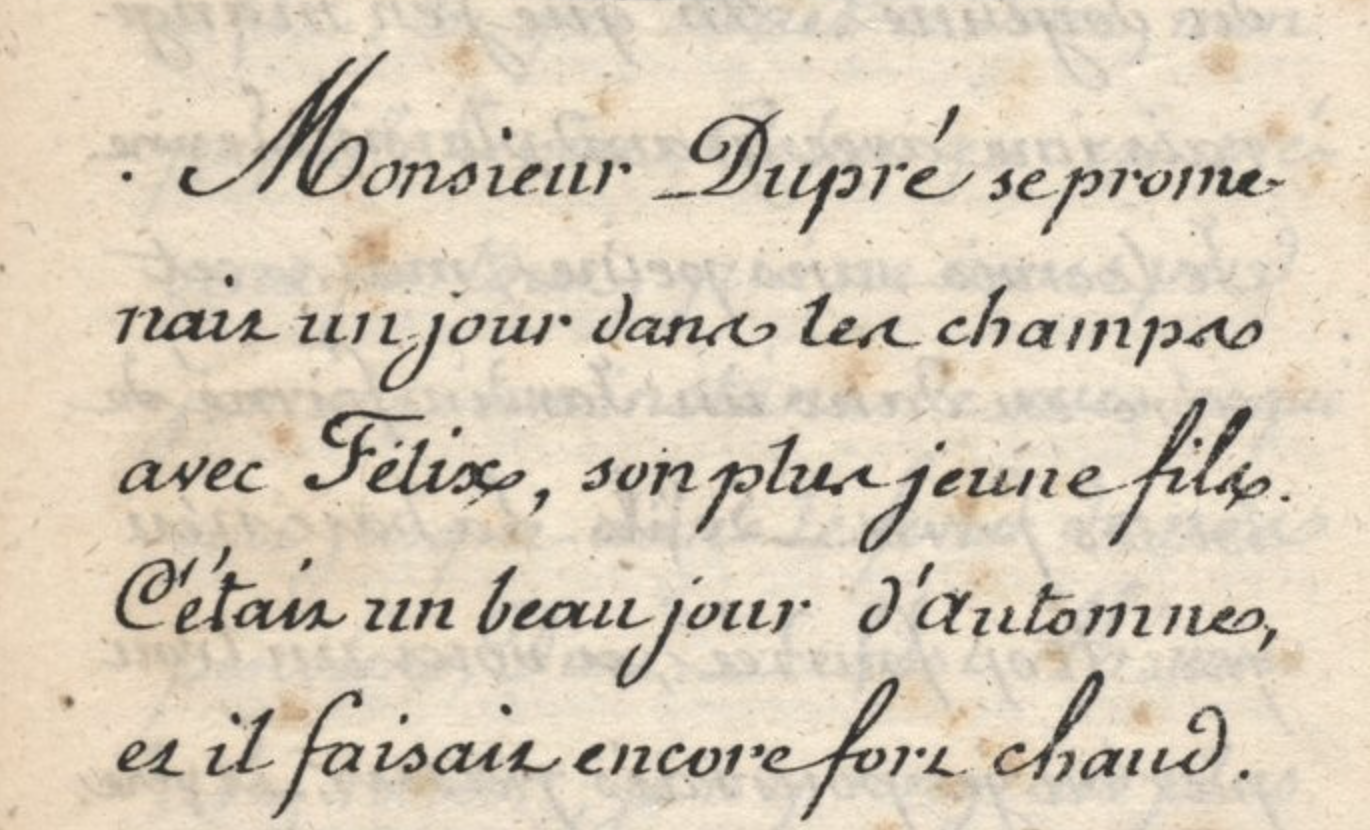 Monsieur Dupré se prome-
nait un jour dans les champs
avec Félix, son plus jeune fils.
C'était un beau jour d'automne,
et il faisait encore fort chaud.